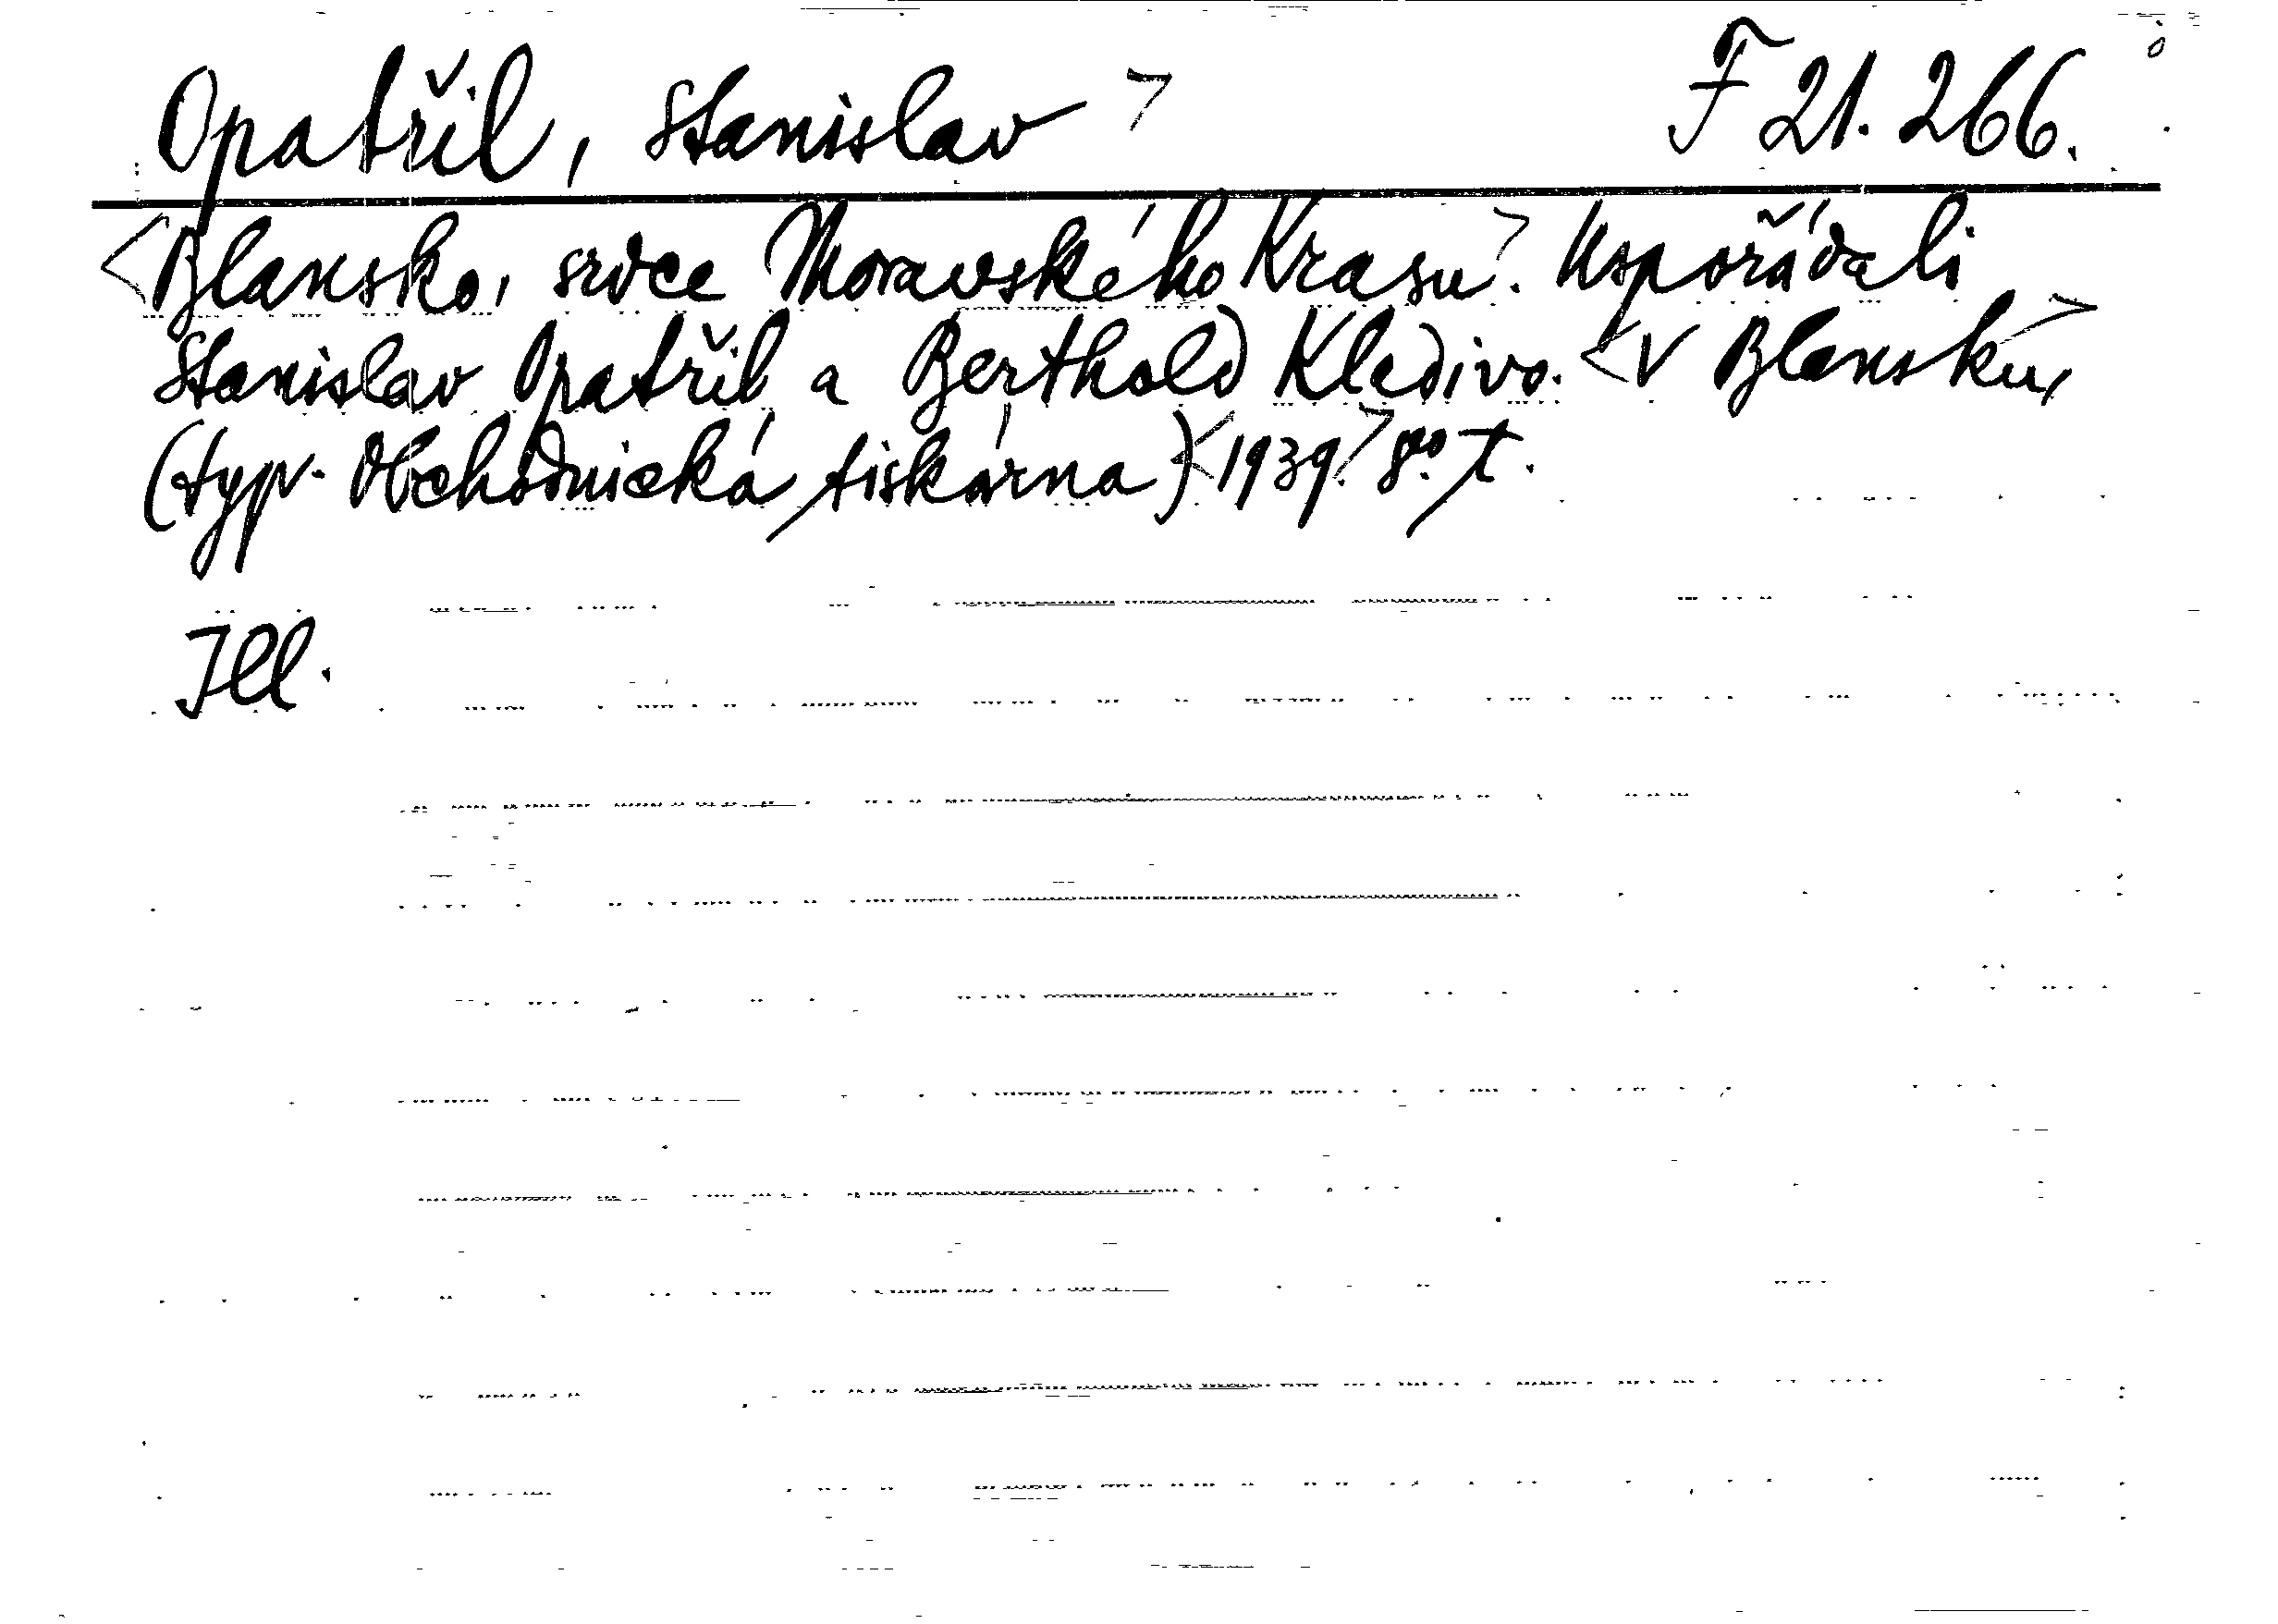 Opatřil, Stanislav > F 21.266.
<Blansko, srdce Moravského Krasu>. Uspořádali
Stanislav Opatřil a Berthold Kledivo. <V Blansku,>
(typ. Obchodnická tiskárna) <1939.> 8°. t.
Ill.